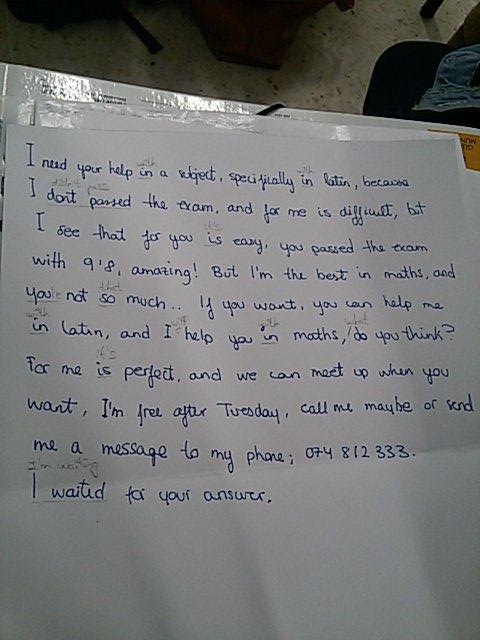 with with
I need your help in a subject, specifically in latin, because
didn't pass
I dont passed the exam, and for me is difficult, but
it's
I see that for you is easy, you passed the exam
with 9'8, amazing! But I'm the best in maths, and
that
you're not so much... If you want, you can help me
with will with what
in latin, and I help you in maths, / do you think?
it's
For me is perfect, and we can meet up when you
want, I'm free after Tuesday, call me maybe or send
me a message to my phone; 074 812 333.
I'm waiting
I waited for your answer.